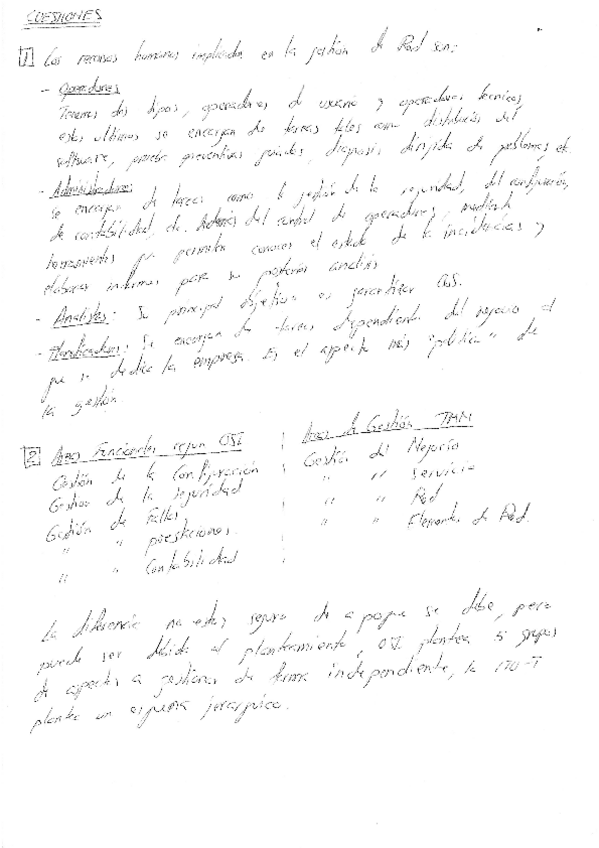 CUESTIONES
1 Los recursos humanos implicados en la gestión de Red son:
- Operadores
Tenemos dos tipos, operadores de usuario y operadores técnicos,
estos últimos se encargan de tareas tales como distribución del
software, pruebas preventivas guiadas, diagnosis dirigida de problemas, etc.
- Administradores
Se encargan de tareas como la gestión de la seguridad, del configuración,
de contabilidad, etc. Además del control de operadores, mediante
herramientas que permiten conocer el estado de la incidencias y
elaborar informes para su posterior analisis
- Analistas: Su principal objetivo es garantizar QoS.
- Planificadores: Se encargan de tareas dependiendo del negocio al
que se dedica la empresa. Es el aspecto más "político" de
la gestión.
2 Areas Funcionales segun OSI
Gestión de la Configuración
Gestion de la seguridad
Gestión de Fallos
" " prestaciones
" " Contabilidad
Areas de Gestión TMN
Gestión del Negocio
" " Servicio
" " Red
" " Elementos de Red.
La diferencia no estoy seguro de a porque se debe, pero
puede ser debido al planteamiento, OSI plantea 5 grupos
de aspectos a gestionar de forma independiente, la ITU-T
plantea un esquema jerarquico.